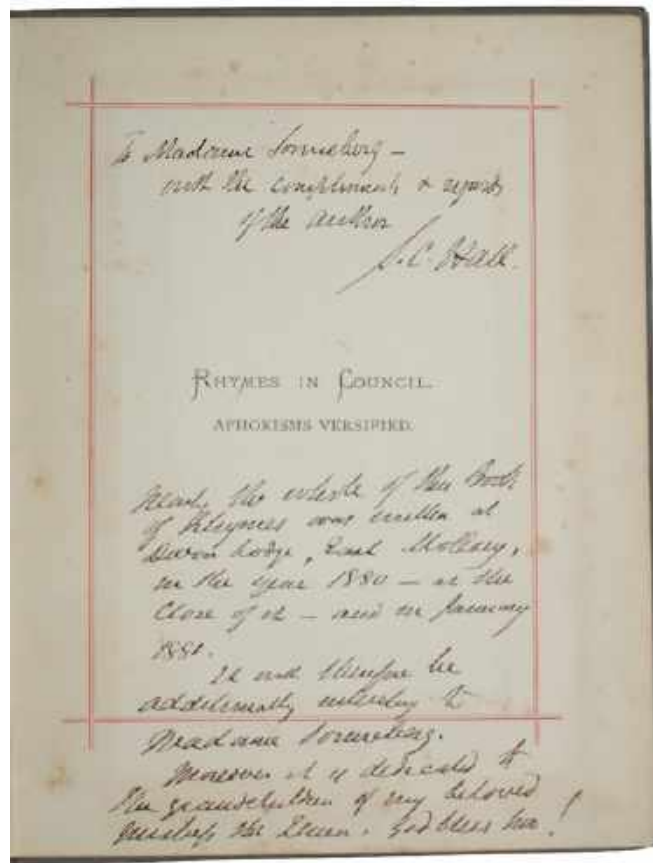 To Madame Sonneberg –
with the compliments & regards
of the author
S. C. Hall.
RHYMES IN COUNCIL.
APHORISMS VERSIFIED.
Nearly the whole of this Book
of Rhymes was written at
Devon Lodge, East Molesey,
in the year 1880 – at the
close of it – and in January
1881.
It will therefore be
additionally interesting to
Madame Sonneberg.
Moreover it is dedicated to
the grandchildren of my beloved
mistress the Queen. God bless her!